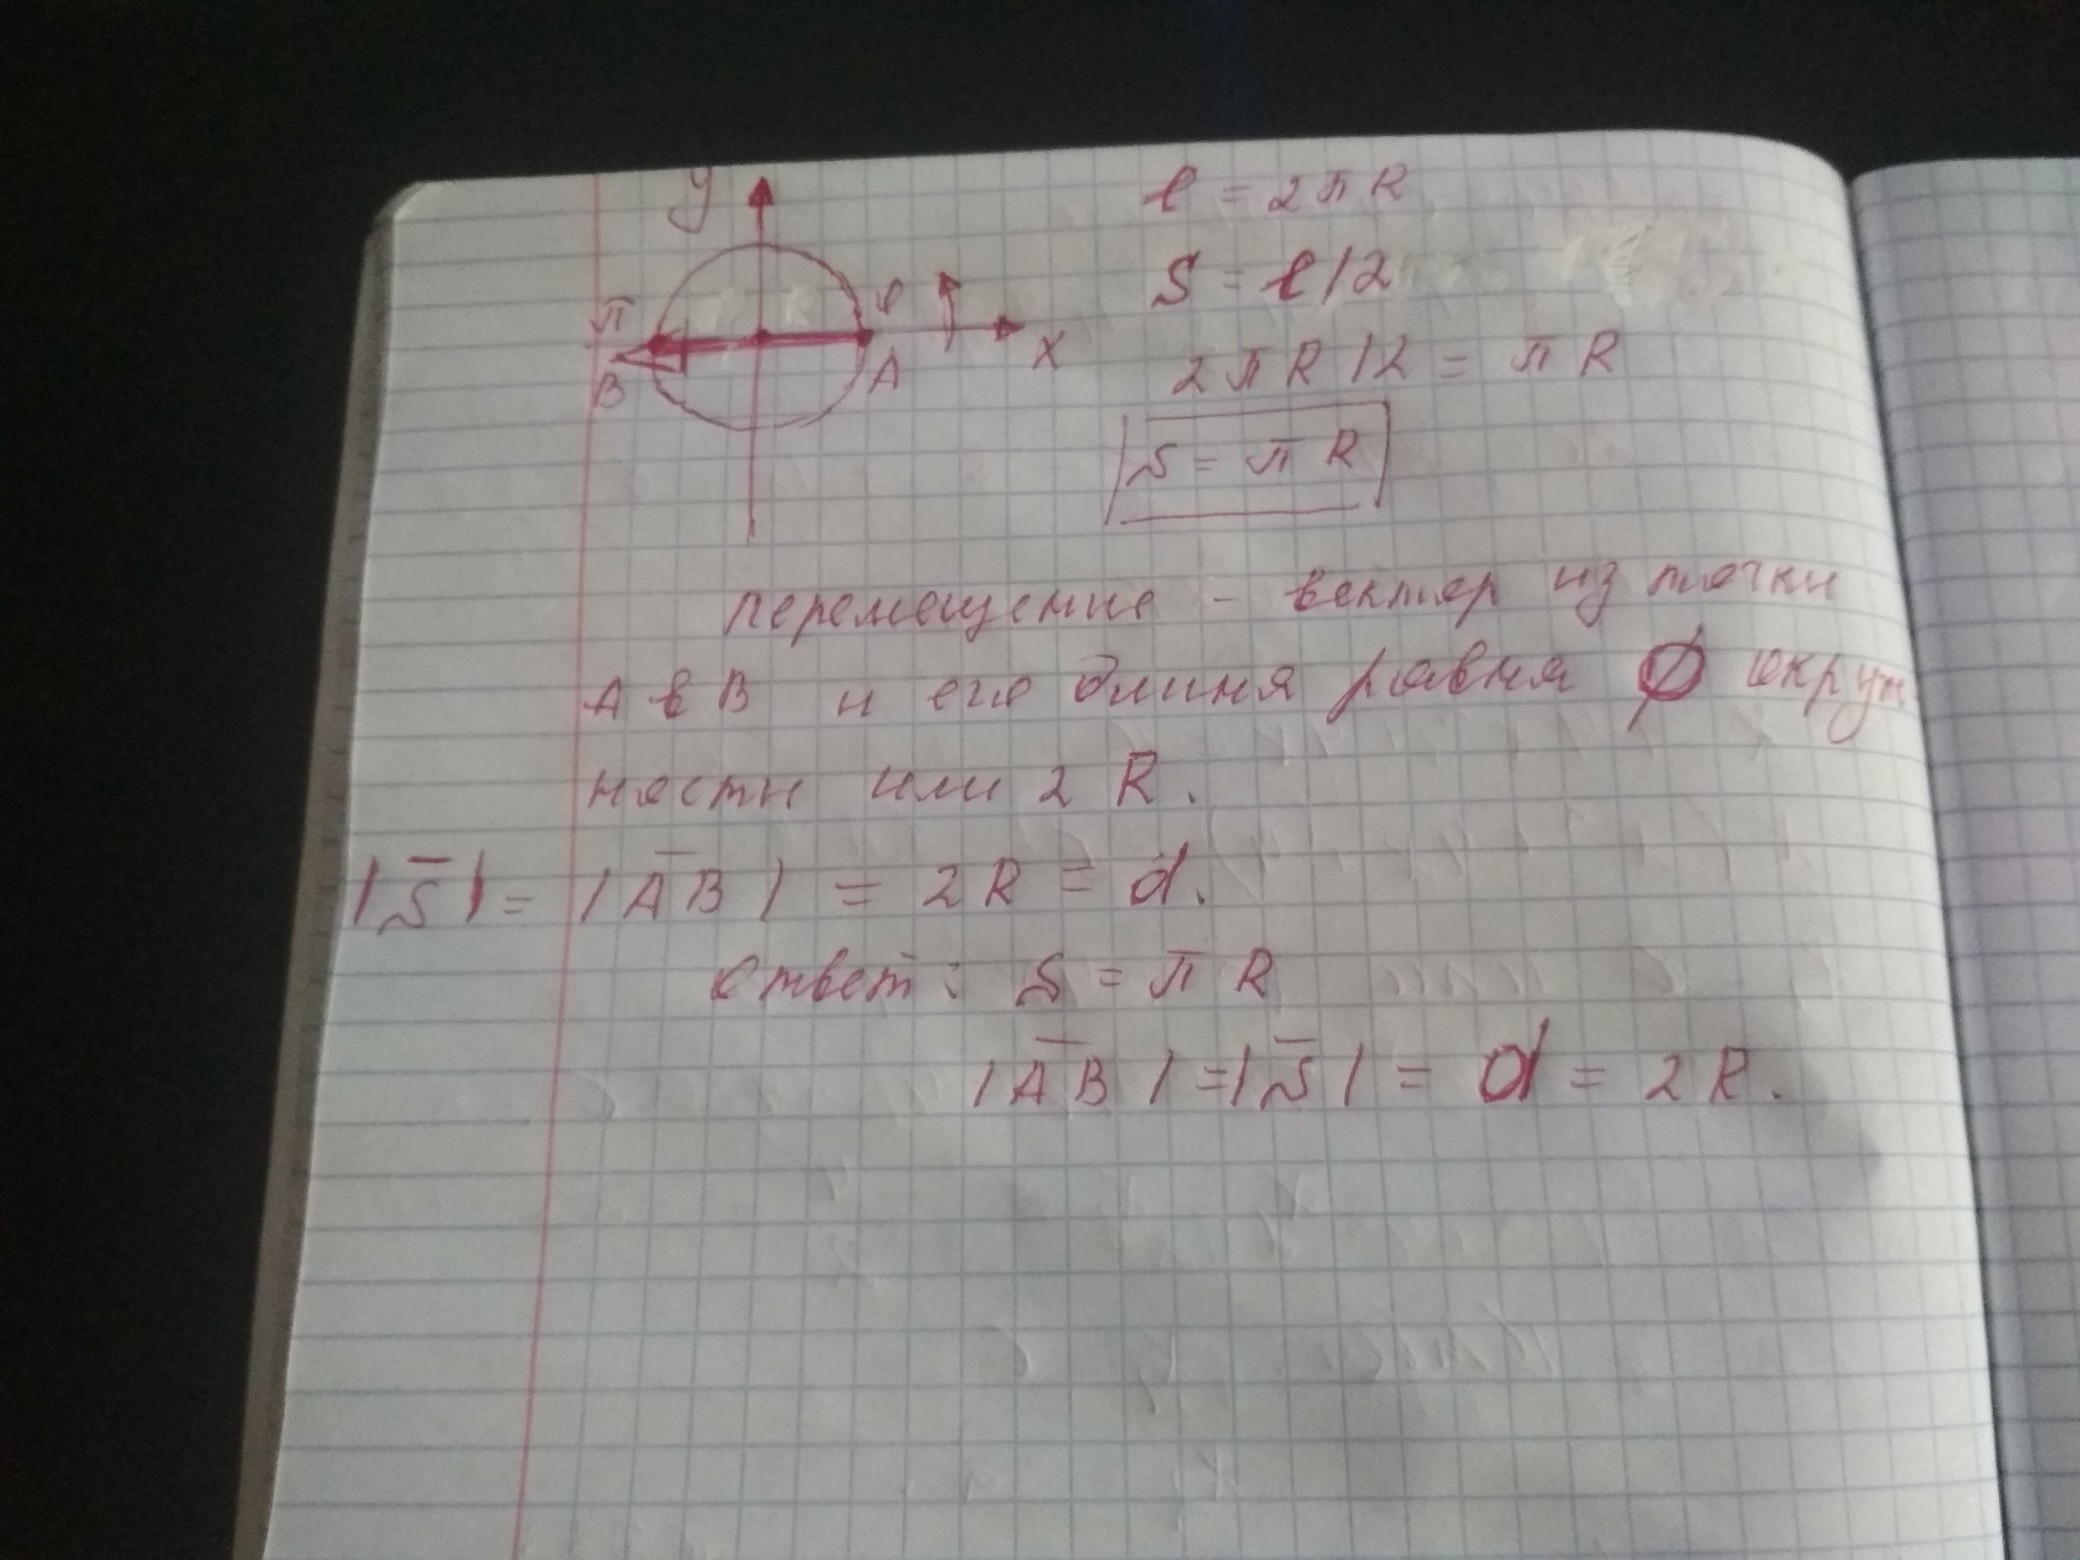 y
π
B
A
x
ℓ = 2πR
S = ℓ/2
2πR/2 = πR
S = πR
перемещение - вектор из точки
A в B и его длина равна ∅ окруж
ности или 2R.
|S̅| = |A̅B̅| = 2R = d.
Ответ: S = πR
|A̅B̅| = |S̅| = d = 2R.